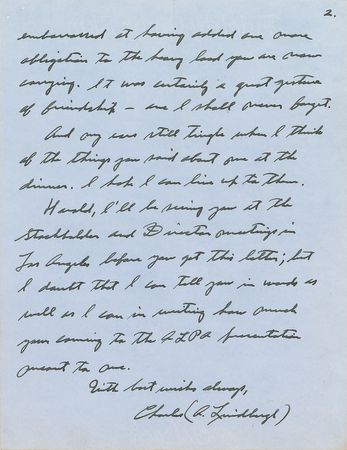 2.
embarrassed at having added one more
obligation to the heavy load you are now
carrying. It was certainly a great gesture
of friendship — one I shall never forget.
And my ears still tingle when I think
of the things you said about me at the
dinner. I hope I can live up to them.
Harold, I'll be seeing you at the
Stockholder and Director meetings in
Los Angeles before you get this letter; but
I doubt that I can tell you in words as
well as I can in writing how much
your coming to the ALPA presentation
meant to me.
With best wishes always,
Charles (A. Lindbergh)